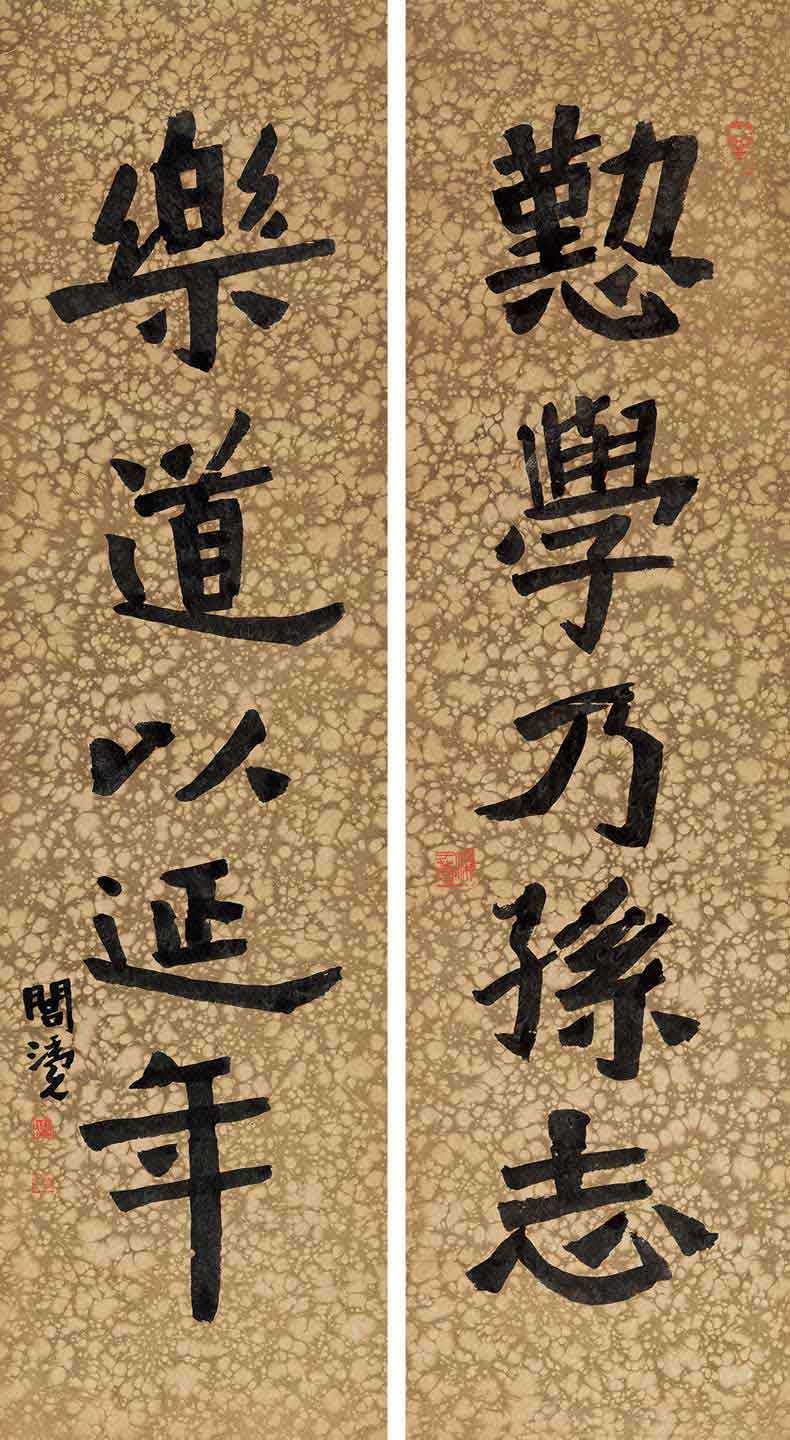 懃學乃孫志
樂道以延年